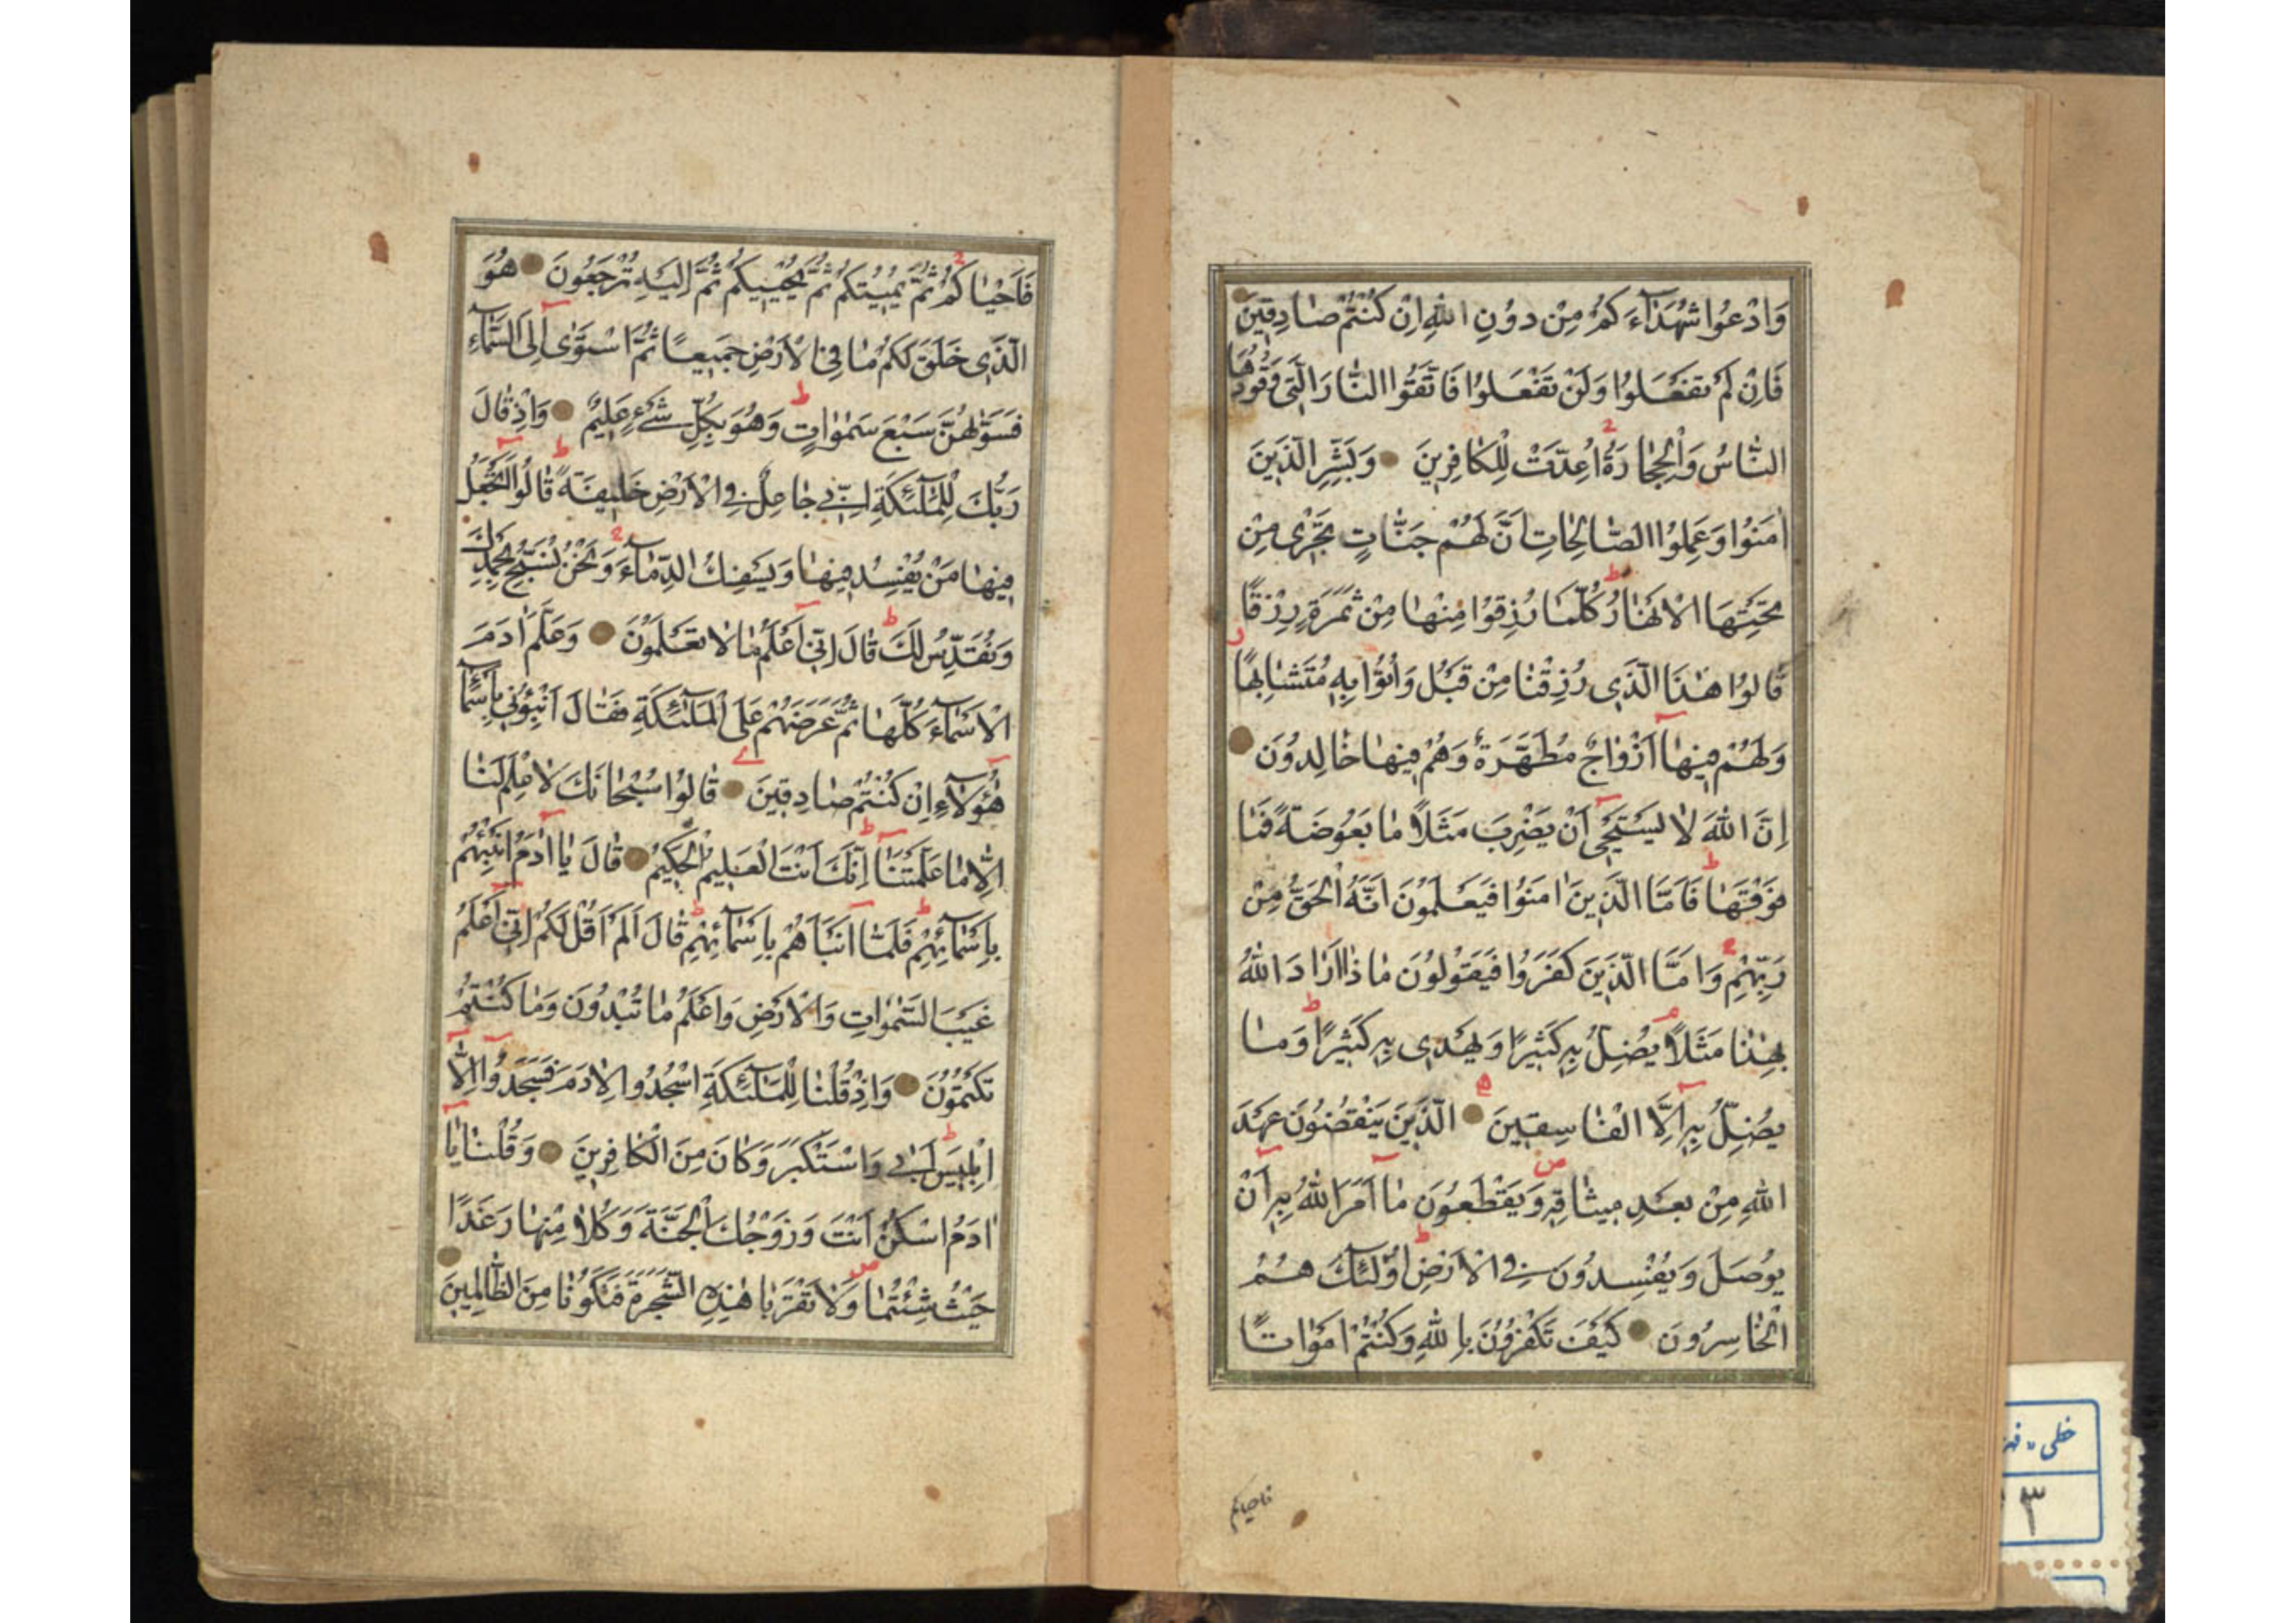 وَادْعُوا شُهَدَآءَكُمْ مِنْ دُونِ اللهِ اِنْ كُنْتُمْ صَادِقِينَ
فَاِنْ لَمْ تَفْعَلُوا وَلَنْ تَفْعَلُوا فَاتَّقُوا النَّارَ الَّتِى وَقُودُهَا
النَّاسُ وَالْحِجَارَةُ اُعِدَّتْ لِلْكَافِرِينَ وَبَشِّرِ الَّذِينَ
اٰمَنُوا وَعَمِلُوا الصَّالِحَاتِ اَنَّ لَهُمْ جَنَّاتٍ تَجْرِى مِنْ
تَحْتِهَا الْاَنْهَارُ كُلَّمَا رُزِقُوا مِنْهَا مِنْ ثَمَرَةٍ رِزْقًا
قَالُوا هٰذَا الَّذِى رُزِقْنَا مِنْ قَبْلُ وَاُتُوا بِهِ مُتَشَابِهًا
وَلَهُمْ فِيهَا اَزْوَاجٌ مُطَهَّرَةٌ وَهُمْ فِيهَا خَالِدُونَ
اِنَّ اللهَ لَا يَسْتَحْيٖ اَنْ يَضْرِبَ مَثَلًا مَا بَعُوضَةً فَمَا
فَوْقَهَا فَاَمَّا الَّذِينَ اٰمَنُوا فَيَعْلَمُونَ اَنَّهُ الْحَقُّ مِنْ
رَبِّهِمْ وَاَمَّا الَّذِينَ كَفَرُوا فَيَقُولُونَ مَاذَا اَرَادَ اللهُ
بِهٰذَا مَثَلًا يُضِلُّ بِهِ كَثِيرًا وَيَهْدِى بِهِ كَثِيرًا وَمَا
يُضِلُّ بِهِ اِلَّا الْفَاسِقِينَ الَّذِينَ يَنْقُضُونَ عَهْدَ
اللهِ مِنْ بَعْدِ مِيثَاقِهِ وَيَقْطَعُونَ مَا اَمَرَ اللهُ بِهِ اَنْ
يُوصَلَ وَيُفْسِدُونَ فِى الْاَرْضِ اُولٰٓئِكَ هُمُ
الْخَاسِرُونَ كَيْفَ تَكْفُرُونَ بِاللهِ وَكُنْتُمْ اَمْوَاتًا
فاحياكم
فَاَحْيَاكُمْ ثُمَّ يُمِيتُكُمْ ثُمَّ يُحْيِيكُمْ ثُمَّ اِلَيْهِ تُرْجَعُونَ هُوَ
الَّذِى خَلَقَ لَكُمْ مَا فِى الْاَرْضِ جَمِيعًا ثُمَّ اسْتَوٰى اِلَى السَّمَآءِ
فَسَوّٰهُنَّ سَبْعَ سَمٰوَاتٍ وَهُوَ بِكُلِّ شَىْءٍ عَلِيمٌ وَاِذْ قَالَ
رَبُّكَ لِلْمَلٰٓئِكَةِ اِنِّى جَاعِلٌ فِى الْاَرْضِ خَلِيفَةً قَالُوا اَتَجْعَلُ
فِيهَا مَنْ يُفْسِدُ فِيهَا وَيَسْفِكُ الدِّمَآءَ وَنَحْنُ نُسَبِّحُ بِحَمْدِكَ
وَنُقَدِّسُ لَكَ قَالَ اِنِّى اَعْلَمُ مَا لَا تَعْلَمُونَ وَعَلَّمَ اٰدَمَ
الْاَسْمَآءَ كُلَّهَا ثُمَّ عَرَضَهُمْ عَلَى الْمَلٰٓئِكَةِ فَقَالَ اَنْبِؤُنِى بِاَسْمَآءِ
هٰٓؤُلَآءِ اِنْ كُنْتُمْ صَادِقِينَ قَالُوا سُبْحَانَكَ لَا عِلْمَ لَنَا
اِلَّا مَا عَلَّمْتَنَا اِنَّكَ اَنْتَ الْعَلِيمُ الْحَكِيمُ قَالَ يَا اٰدَمُ اَنْبِئْهُمْ
بِاَسْمَآئِهِمْ فَلَمَّا اَنْبَاَهُمْ بِاَسْمَآئِهِمْ قَالَ اَلَمْ اَقُلْ لَكُمْ اِنِّى اَعْلَمُ
غَيْبَ السَّمٰوَاتِ وَالْاَرْضِ وَاَعْلَمُ مَا تُبْدُونَ وَمَا كُنْتُمْ
تَكْتُمُونَ وَاِذْ قُلْنَا لِلْمَلٰٓئِكَةِ اسْجُدُوا لِاٰدَمَ فَسَجَدُوا اِلَّا
اِبْلِيسَ اَبٰى وَاسْتَكْبَرَ وَكَانَ مِنَ الْكَافِرِينَ وَقُلْنَا يَا
اٰدَمُ اسْكُنْ اَنْتَ وَزَوْجُكَ الْجَنَّةَ وَكُلَا مِنْهَا رَغَدًا
حَيْثُ شِئْتُمَا وَلَا تَقْرَبَا هٰذِهِ الشَّجَرَةَ فَتَكُونَا مِنَ الظَّالِمِينَ
خطی
۳